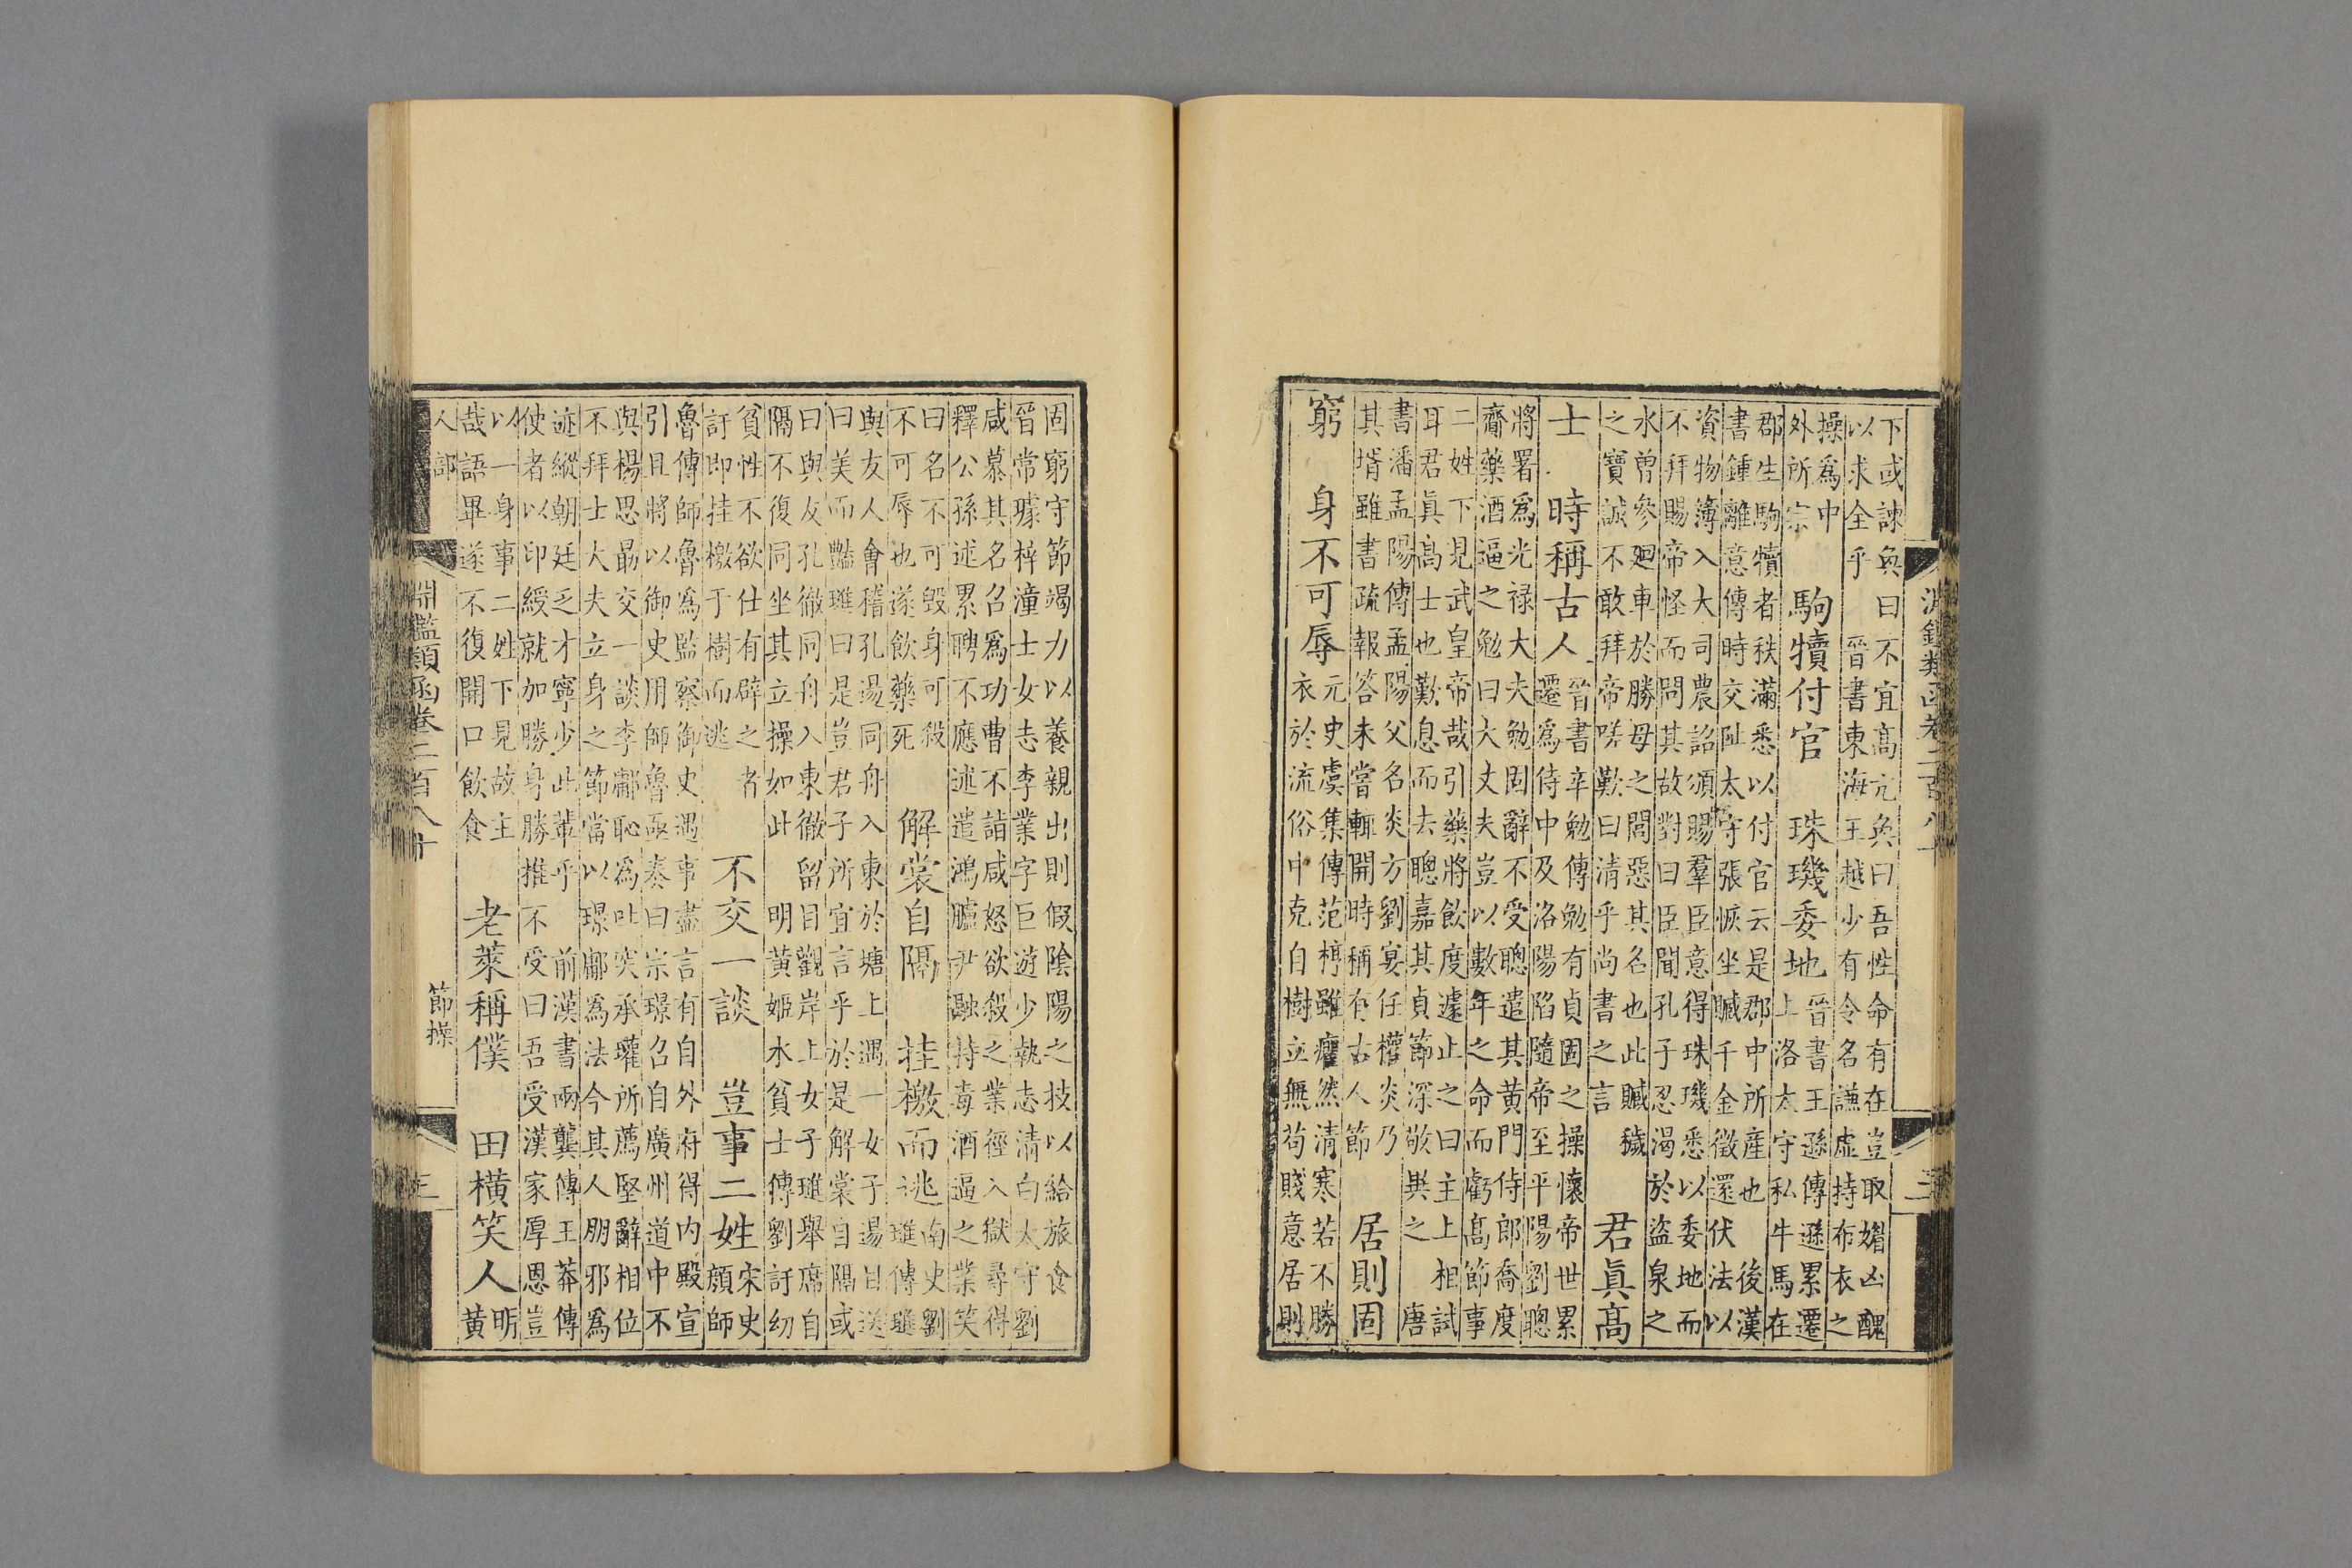 淵鑑類函卷二百八十
三
下或諫奐曰不宜高亢奐曰吾性命有在豈取媚凶醜
以求全乎　晉書東海王越少有令名謙虛持布衣之
操為中
外所宗
駒犢付官　珠璣委地
晉書王遜傳遜累遷
上洛太守私牛馬在
郡生駒犢者秩滿悉以付官云是郡中所產也　後漢
書鍾離意傳時交阯太守張恢坐贓千金徵還伏法以
資物簿入大司農詔頒賜羣臣意得珠璣悉以委地而
不拜賜帝怪而問其故對曰臣聞孔子忍渴於盜泉之
水曾參廻車於勝母之閭惡其名也此贓穢
之寶誠不敢拜帝嗟歎曰清乎尚書之言
君眞高
士　時稱古人
晉書辛勉傳勉有貞固之操懷帝世累
遷為侍中及洛陽陷隨帝至平陽劉聰
將署為光祿大夫勉固辭不受聰遣其黃門侍郎喬度
齎藥酒逼之勉曰大丈夫豈以數年之命而虧高節事
二姓下見武皇帝哉引藥將飲度遽止之曰主上相試
耳君眞高士也歎息而去聰嘉其貞節深敬異之　唐
書潘孟陽傳孟陽父名炎方劉宴任權炎乃
其壻雖書疏報答未嘗輒開時稱有古人節
居則固
窮　身不可辱
元史虞集傳范梈雖癯然清寒若不勝
衣於流俗中克自樹立無苟賤意居則
固窮守節竭力以養親出則假陰陽之技以給旅食
晉常璩梓潼士女志李業字巨遊少執志清白太守劉
咸慕其名召爲功曹不詣咸怒欲殺之業徑入獄尋得
釋公孫述累聘不應述遣鴻臚尹融持毒酒逼之業笑
曰名不可毀身可殺
不可辱也遂飲藥死
解裳自隔　挂檄而逃
南史劉
璡傳璡
與友人會稽孔逷同舟入東於塘上遇一女子逷目送
曰美而豔璡曰是豈君子所宜言乎於是解裳自隔或
曰與友孔徹同舟入東徹留目觀岸上女子璡舉席自
隔不復同坐其立操如此　明黃姬水貧士傳劉訏幼
貧性不欲仕有辟之者
訏即挂檄于樹而逃
不交一談　豈事二姓
宋史
顏師
魯傳師魯爲監察御史遇事盡言有自外府得內殿宣
引且將以御史用師魯亟奏曰宗璟召自廣州道中不
與楊思勗交一談李鄘恥爲吐突承璀所薦堅辭相位
不拜士大夫立身之節當以璟鄘爲法今其人朋邪爲
迹縱朝廷乏才寧少此輩乎　前漢書兩龔傳王莽傳
使者以印綬就加勝身勝推不受曰吾受漢家厚恩豈
以一身事二姓下見故主
哉語畢遂不復開口飲食
老萊稱僕　田橫笑人
明
黃
人部
淵鑑類函卷二百八十
節操
三